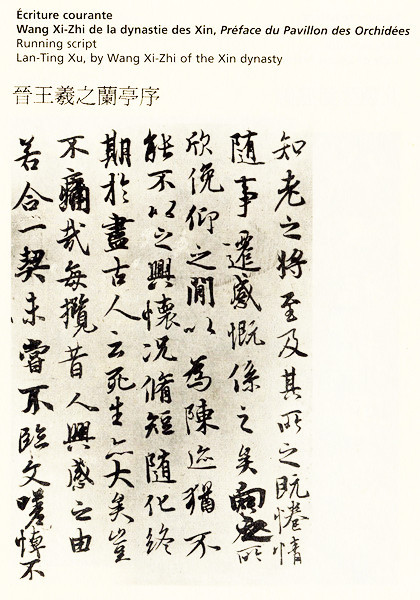 Écriture courante
Wang Xi-Zhi de la dynastie des Xin, Préface du Pavillon des Orchidées
Running script
Lan-Ting Xu, by Wang Xi-Zhi of the Xin dynasty
晉王羲之蘭亭序
知老之將至及其所之既惓情
隨事遷感慨係之矣向之所
欣俛仰之閒以為陳迹猶不
能不以之興懷況脩短隨化終
期於盡古人云死生亦大矣豈
不痛哉每攬昔人興感之由
若合一契未嘗不臨文嗟悼不